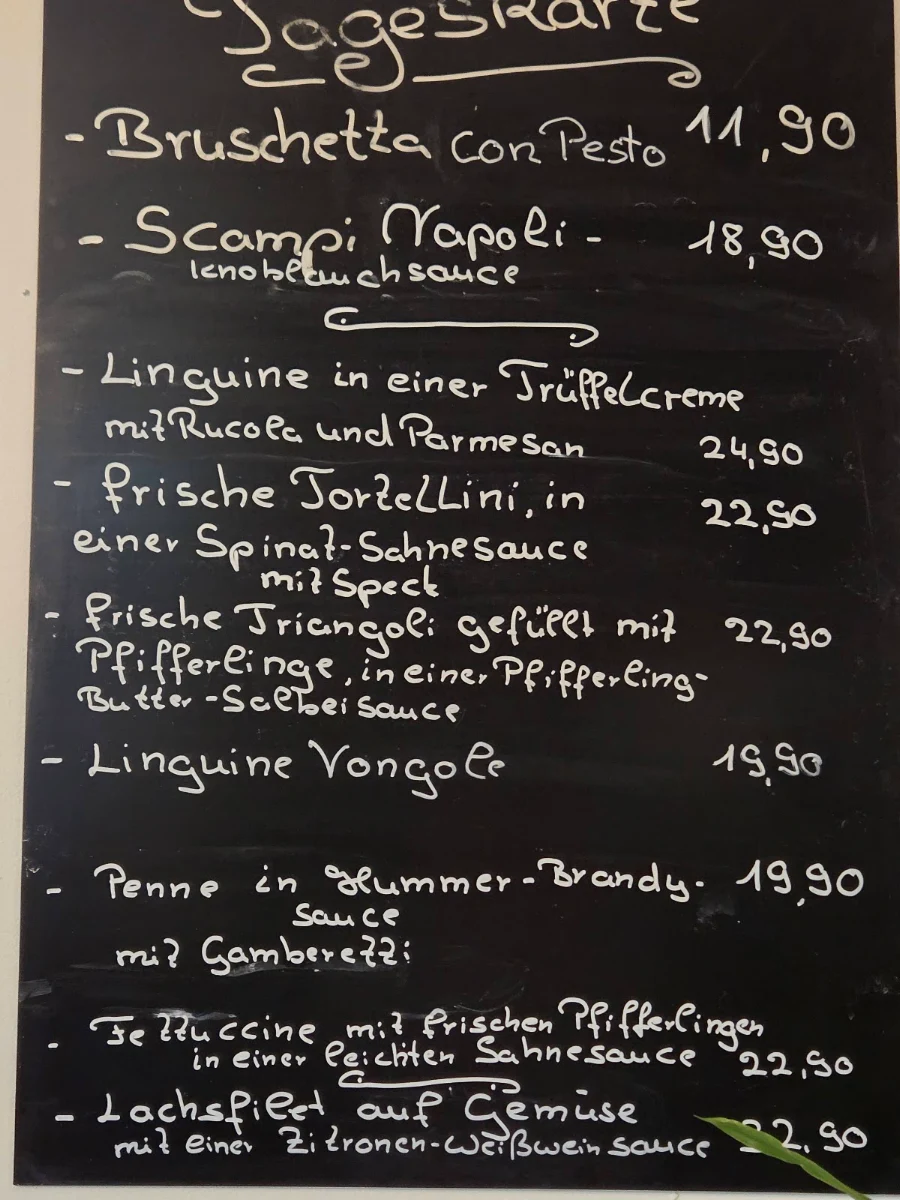 Tageskarte
- Bruschetta con Pesto 11,90
- Scampi Napoli - 18,90
Knoblauchsauce
- Linguine in einer Trüffelcreme
mit Rucola und Parmesan 24,90
- frische Tortellini, in 22,90
einer Spinat-Sahnesauce
mit Speck
- frische Triangoli gefüllt mit 22,90
Pfifferlinge, in einer Pfifferling-
Butter-Salbeisauce
- Linguine Vongole 19,90
- Penne in Hummer-Brandy- 19,90
sauce
mit Gamberetti
- Fettuccine mit frischen Pfifferlingen
in einer leichten Sahnesauce 22,90
- Lachsfilet auf Gemüse
mit einer Zitronen-Weißweinsauce 22,90